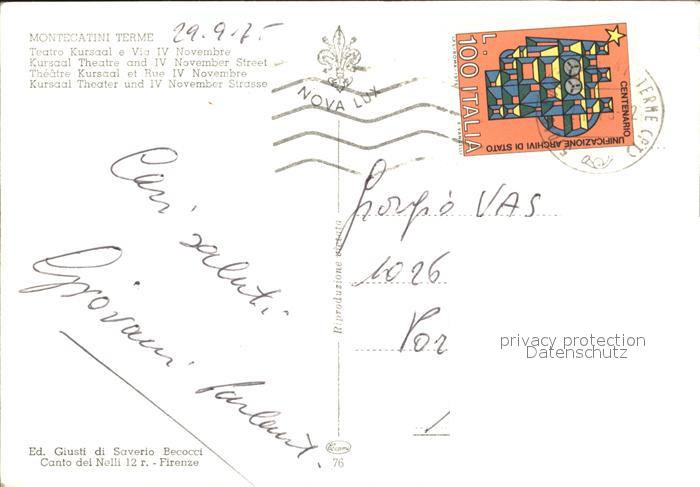 MONTECATINI TERME 29.9.75
Teatro Kursaal e Via IV Novembre
Kursaal Theatre and IV November Street
Théâtre Kursaal et Rue IV Novembre
Kursaal Theater und IV November Strasse
NOVA LUX
L. 100 ITALIA
CENTENARIO
UNIFICAZIONE ARCHIVI DI STATO
TERME
Cari saluti
Giovanni
Giorgio VAS
1026
Riproduzione vietata
privacy protection
Datenschutz
Ed. Giusti di Saverio Becocci
Canto dei Nelli 12 r. - Firenze
76